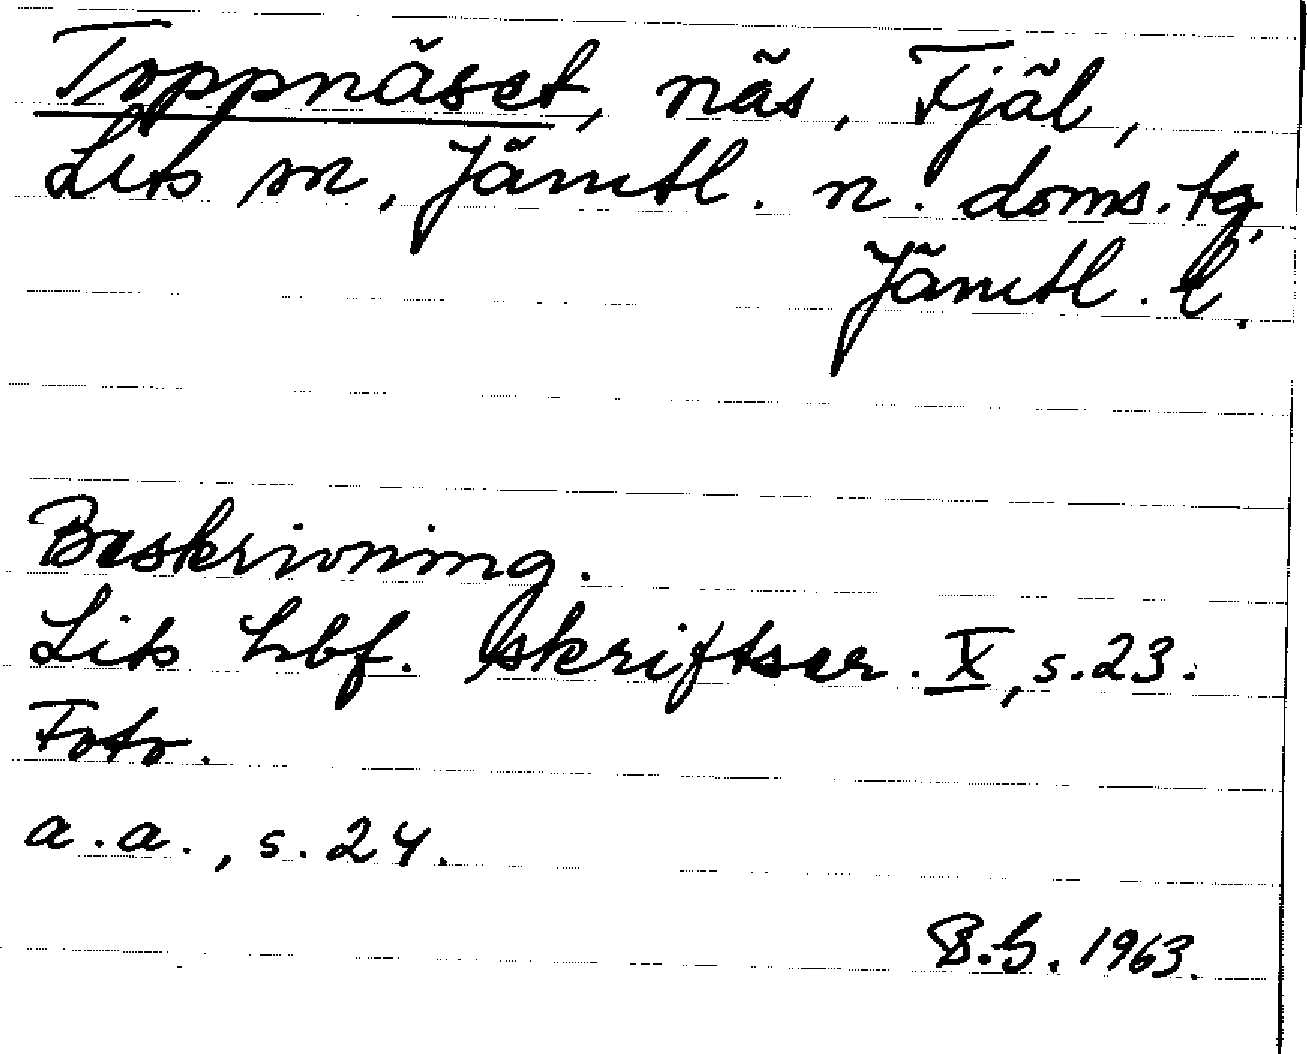 Toppnäset, näs, Fjäl,
Lits sn, Jämtl. n. doms. tg,
Jämtl. l.
Beskrivning.
Lits hbf. skriftser. X, s. 23.
Foto.
a.a., s. 24.
B.G. 1963.